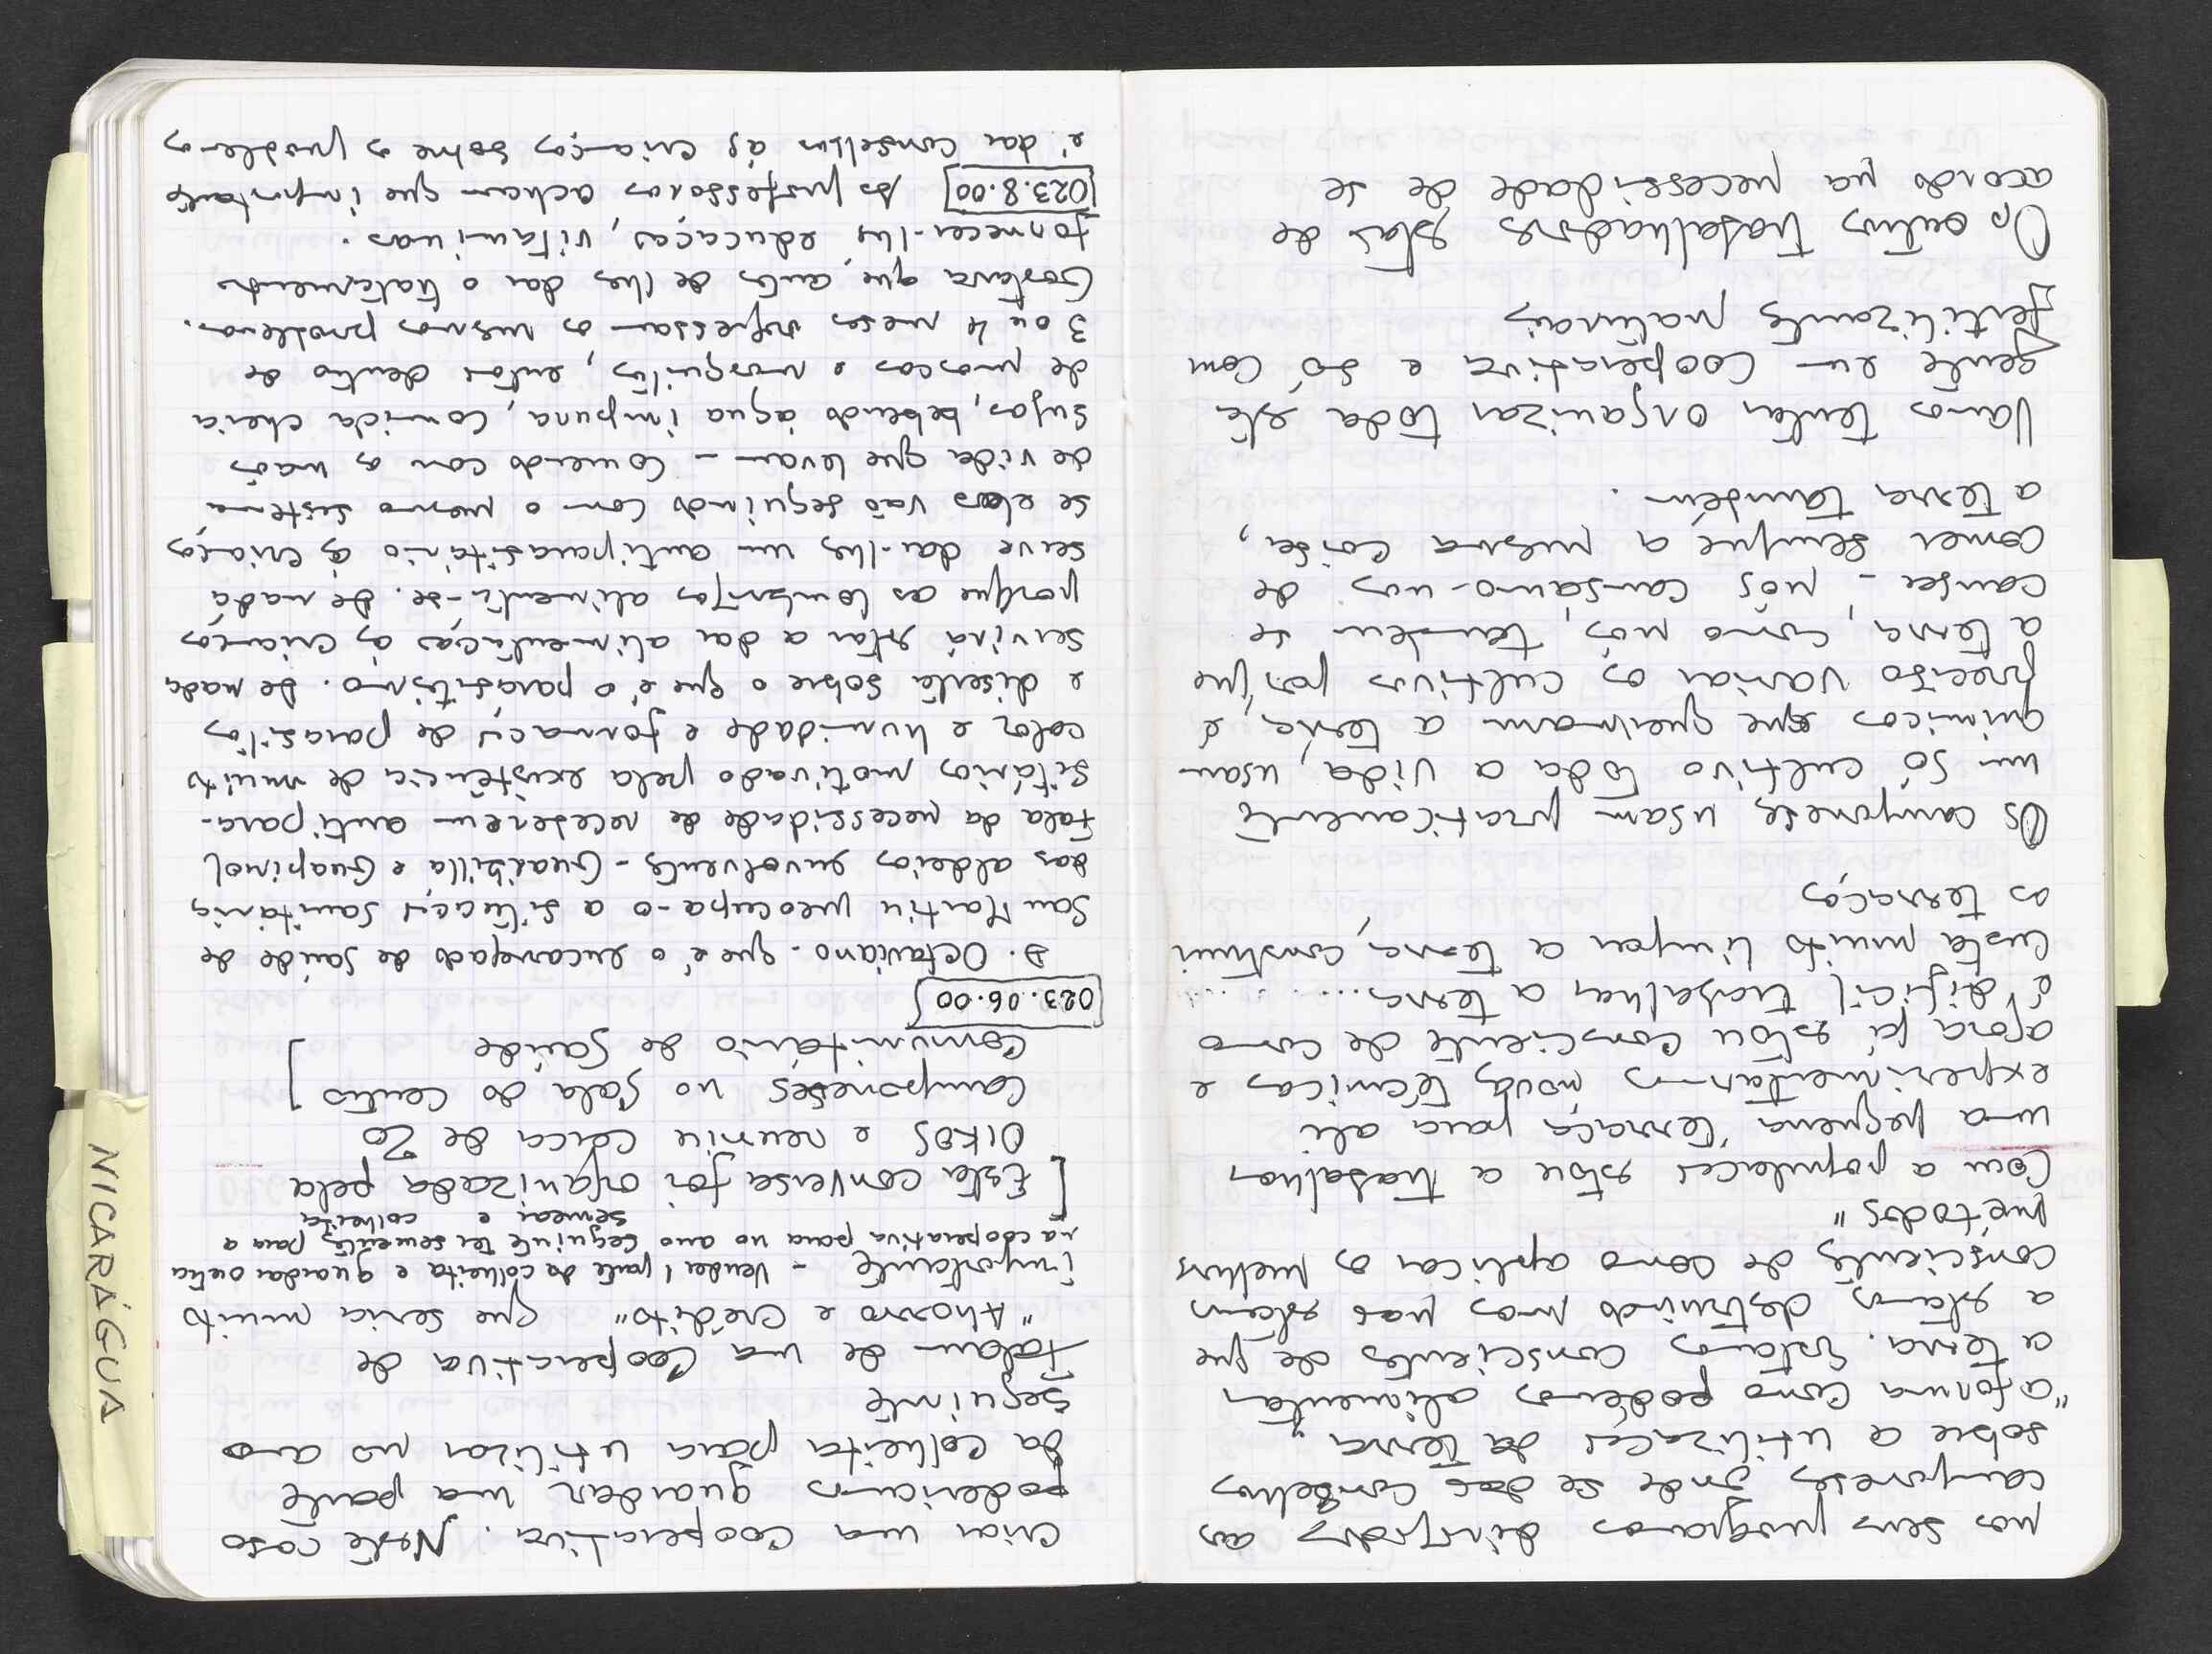 nos seus programas dirigidos aos
camponeses onde se dão conselhos
sobre a utilização da terra,
"a forma como podemos alimentar
a terra. Estamos conscientes de que
a estamos destruindo mas não estamos
conscientes de como aplicar os melhores
métodos"
Com a população estou a trabalhar
uma pequena terraça para ali
experimentarmos novas técnicas e
agora já estou consciente de como
é difícil trabalhar a terra......
custa muito limpar a terra, construir
as terraças
Os camponeses usam praticamente
um só cultivo toda a vida, usam
químicos que queimam a terra, é
preciso variar os cultivos porque
a terra, como nós, também se
cansa - nós cansamo-nos de
comer sempre a mesma coisa,
a terra também.
Vamos tentar organizar toda esta
gente em cooperativa e só com
fertilizantes naturais
Os outros trabalhadores estão de
acordo na necessidade de se
criar uma cooperativa. Neste caso
poderíamos guardar uma parte
da colheita para utilizar no ano
seguinte
falam de uma Cooperativa de
"Ahorro e Crédito" que seria muito
importante - Vender 1 parte da colheita e guardar outra
na cooperativa para no ano seguinte ter sementes para a
semear e colheita
[Esta conversa foi organizada pela
OIKOS e reuniu cerca de 20
camponeses no Sala do Centro
Comunitário de Saúde]
023.06.00
D. Octaviano - que é o encarregado de saúde de
San Martin preocupa-o a situação sanitária
das aldeias envolventes - Guatzilla e Guapinol
Fala da necessidade de receberem antipara-
sitários motivado pela existência de muito
calor e humidade e formação de parasitos
e diserta sobre o que é o parasitismo. De nada
servirá estar a dar alimentação às crianças
porque as lombrigas alimenta-se. De nada
serve dar-lhes um antiparasitário às crianças
se elas vão seguindo com o mesmo sistema
de vida que levam - comendo com as mãos
sujas, bebendo água impura, comida cheia
de moscas e mosquitos, então dentro de
3 ou 4 meses regressam os mesmos problemas.
Gostava que, antes de lhes dar o tratamento
fornecer-lhes educação, vitaminas.
023.8.00 Os professores acham que importante
é dar conselhos às crianças sobre os problemas
NICARÁGUA